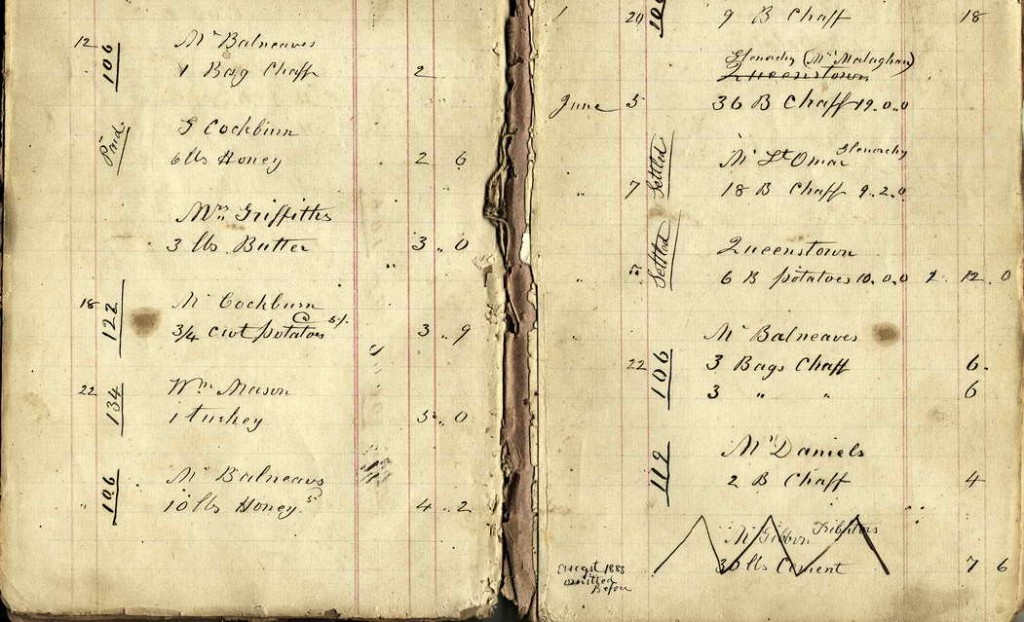 12 106 Mr Balneaves
1 Bag Chaff 2
Paid. G Cockburn
6 lbs Honey 2 6
Mrs Griffiths
3 lbs. Butter 3 .. 0
18 122 Mr Cockburn
3/4 cwt potatoes @ 5/. 3 .. 9
22 134 Wm Mason
1 turkey 5 .. 0
" 106 Mr Balneaves
10 lbs Honey 5d 4 .. 2
1 20 106 9 B Chaff 18
Glenorchy (Mr Malaghan)
Queenstown
June 5 36 B Chaff 19.0.0
Settled Mr St Omar Glenorchy
" 7 18 B Chaff 9.2.0
Settled Queenstown
" " 6 B potatoes 10.0.0 2 . 12 . 0
106 Mr Balneaves
" 22 3 Bags Chaff 6.
3 " " 6
119 Mr Daniels
2 B Chaff 4
Mr Gibbon
30 lbs Cement 7 6
August 1885
omitted
Before